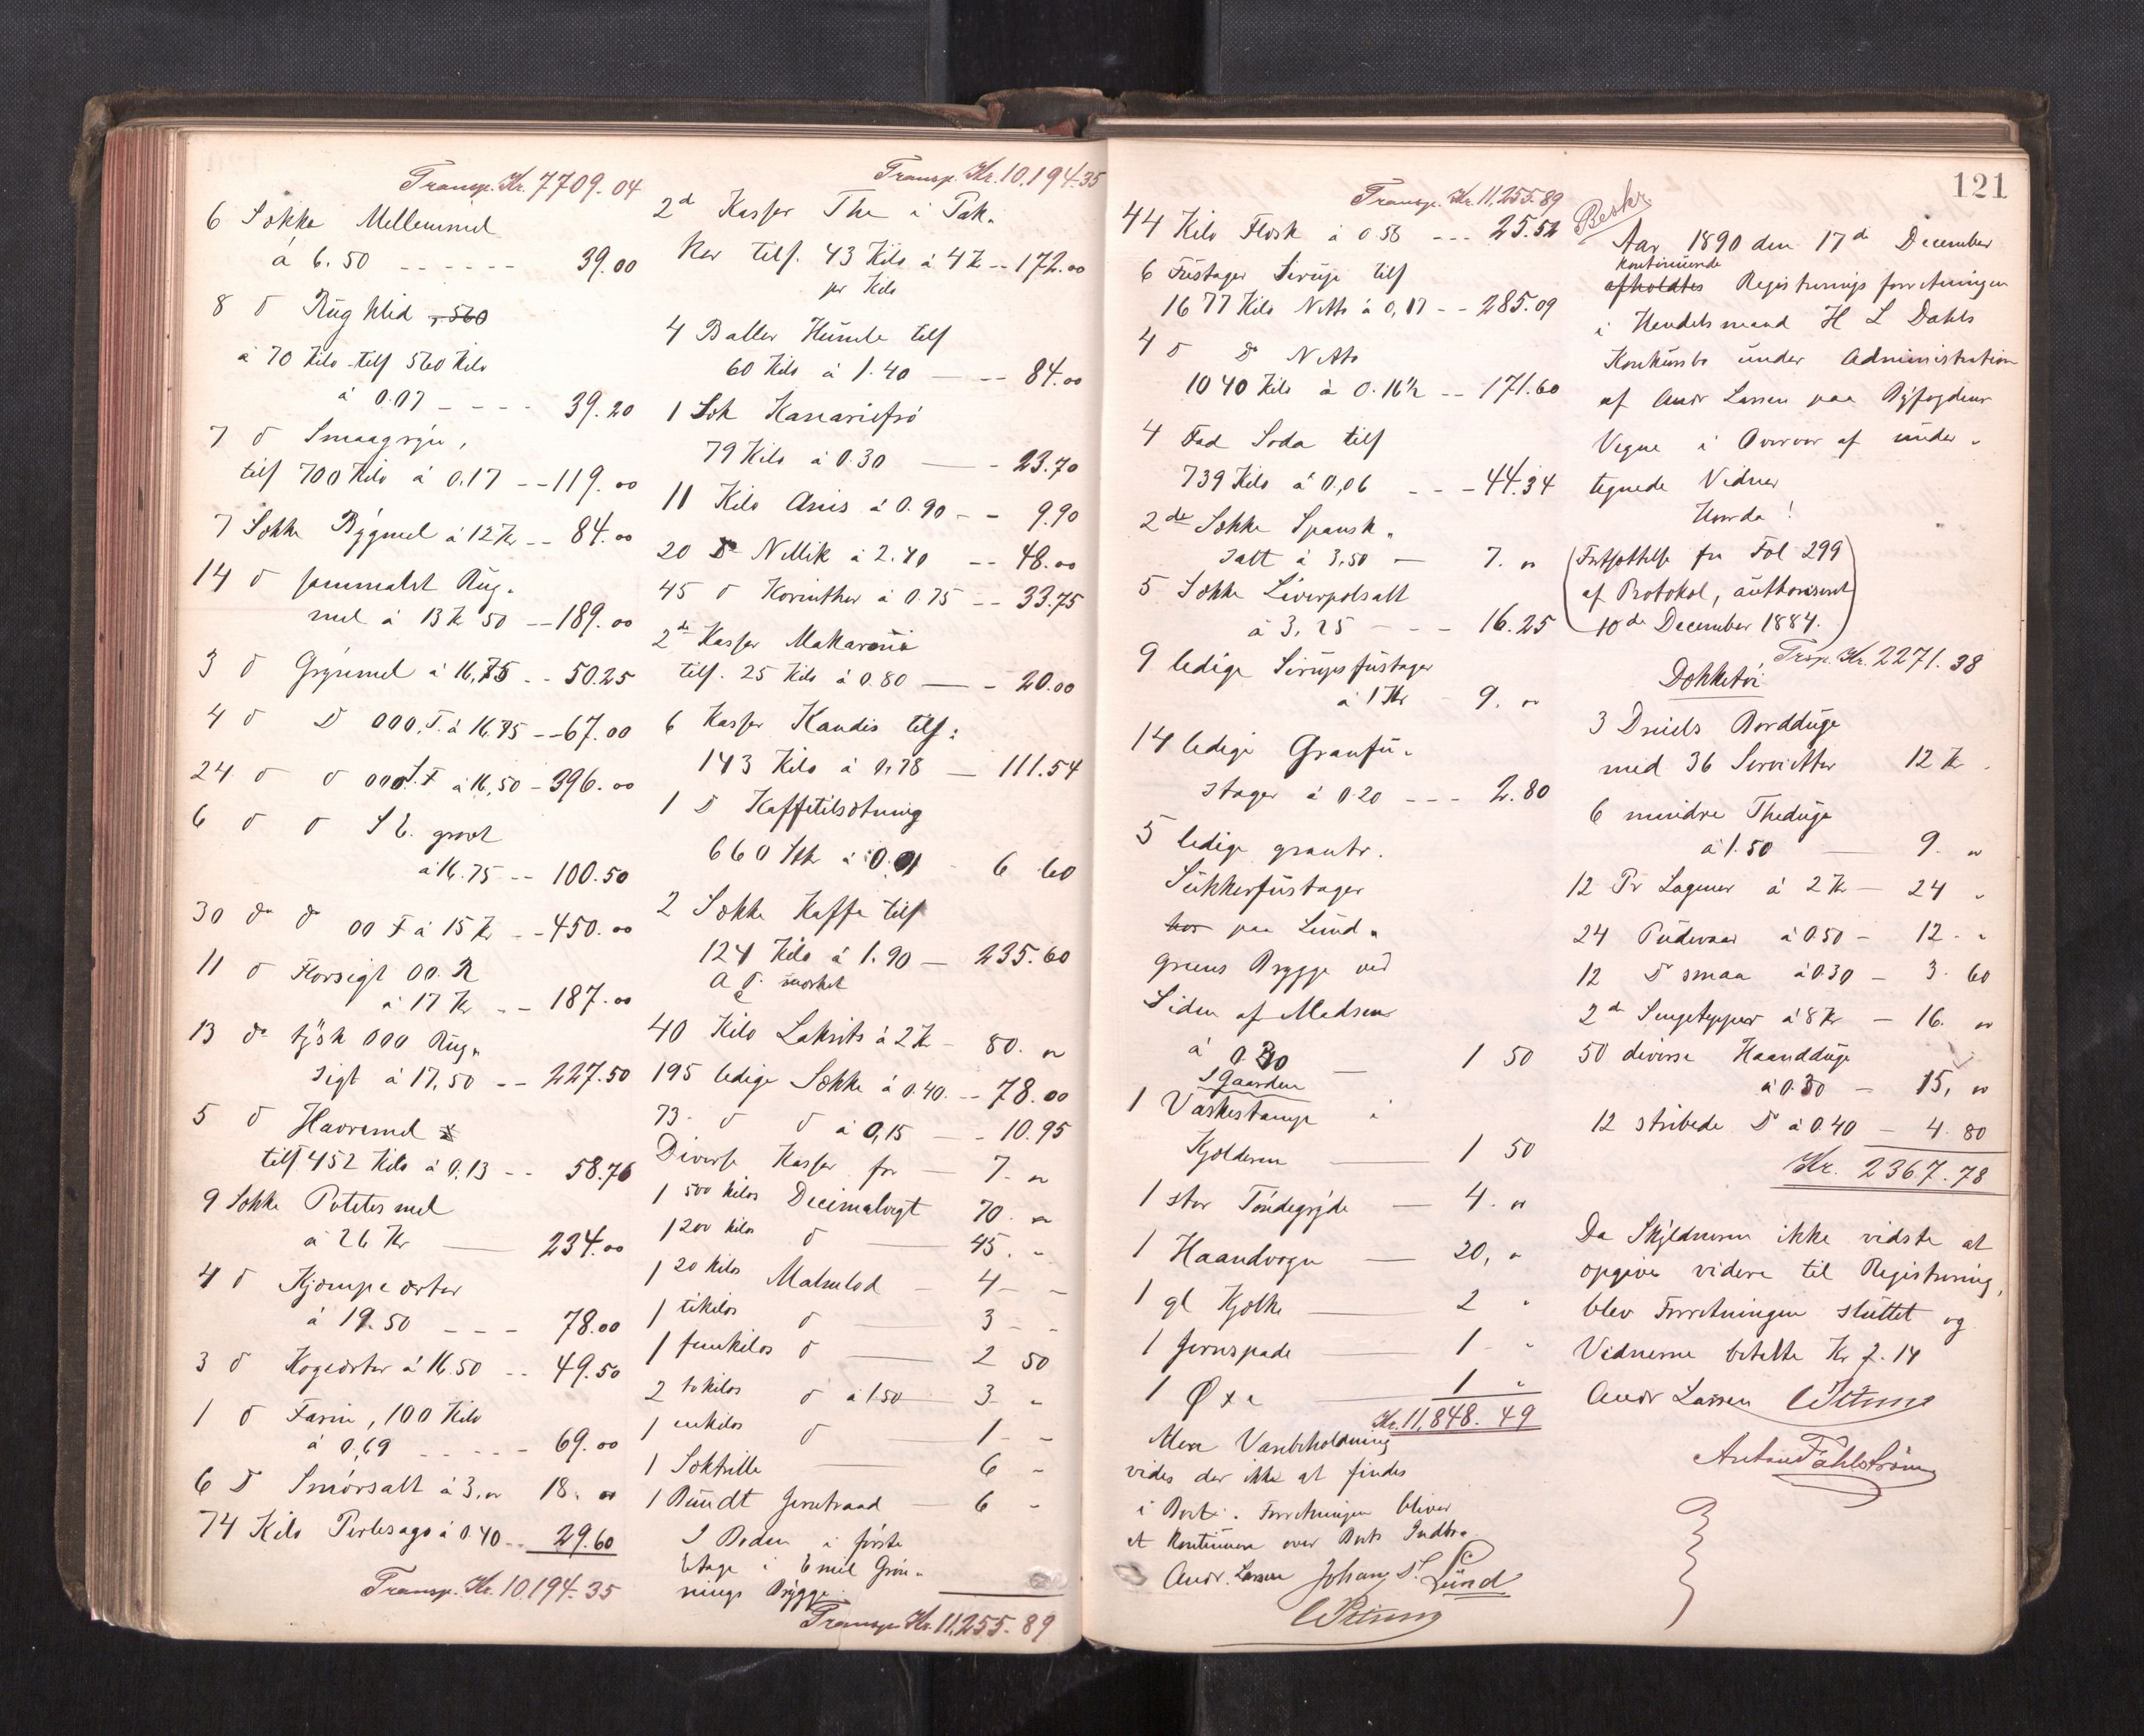 Transp. Kr. 7709.04
6 Sække Mellemmel
á 6.50 - - - - - - 39.00
8 d Rug klid
á 70 Kilo tils 560 Kilo
á 0.07 - - - - 39.20
7 d Smaagryn,
tils 700 Kilo á 0.17 - - 119.00
7 Sække Bygmel á 12 Kr - - 84.00
14 d sammalet Rug-
mel á 13 Kr 50 - - 189.00
3 d Grynmel á 16,75 - - 50.25
4 d D 000. F. á 16.75 - - 67.00
24 d d 000 F á 16,50 - 396.00
6 d d grovt
á 16.75 - - 100.50
30 do do 00 F á 15 Kr - - 450.00
11 d Florsigt 00. R
á 17 Kr - - 187.00
13 do tysk 000 Rug-
sigt á 17,50 - - 227.50
5 d Havremel
tils 452 Kilo á 0.13 - - 58.76
9 Sække Potetesmel
á 26 Kr — 234.00
4 d Kjæmpeærter
á 19.50 - - - 78.00
3 d Kogeærter á 16.50 - - 49.50
1 d Farin, 100 Kilo
á 0,69 - - - - - 69.00
6 D Smørsalt á 3,00 18.00
74 Kilo Perlesago á 0.40 - - 29.60
Transp. Kr. 10,194.35
Transp. Kr. 10,194.35
2d Kasser The i Pak-
ker tils. 43 Kilo á 4 Kr - - 172.00
pr Kilo
4 Baller Humle tils
60 Kilo á 1.40 — - - 84.00
1 Sæk Kanariefrø
79 Kilo á 0.30 — - 23.70
11 Kilo Anis á 0.90 - - 9.90
20 Do Nellik á 2.40 - - 48.00
45 d Korinther á 0.75 - - 33.75
2de Kasser Makaroni
tils. 25 Kilo á 0.80 — - 20.00
6 Kasser Kandis tils:
143 Kilo á 0.78 — 111.54
1 D Kaffetilsætning
660 Stk á 0.01 - 6 60
2 Sække Kaffe tils
124 Kilo á 1.90 — 235.60
mærket
40 Kilo Lakrits á 2 Kr - 80. "
195 ledige Sække á 0.40. - - 78.00
73- d d á 0,15 — - 10.95
Diverse Kasser for — 7. "
1 500 kilos Decimalvægt 70. "
1 200 kilos d — 45. "
1 20 kilos Malmlod — 4 -
1 tikilos d — 3 -
1 femkilos d — 2 50
2 tokilos d á 1.50 — 3 "
1 enkilos d — 1 -
1 Sæktrille — 6 -
1 Bundt Jerntraad — 6 -
I Boden i første
Etage i Emil Grøn-
nings Brygge.
Transp. Kr. 11,255.89
Transp. Kr. 11,255.89
44 Kilo Flesk á 0.58 - - - 25.52
6 Fustager Sirup tils
1677 Kilo Netto á 0,17 - - 285.09
4 d Do Netto
1040 Kilo á 0.16½ - - 171.60
4 Fad Soda tils
739 Kilo á 0,06 - - - 44.34
2de Sække Spansk-
salt á 3,50 — 7. "
5 Sække Liverpolsalt
á 3,25 - - - 16.25
9 ledige Sirupsfustager
á 1 Kr 9. "
14 ledige Granfu-
stager á 0.20 - - - 2.80
5 ledige grantr.
Sukkerfustager
hos paa Lund-
greens Brygge ved
Siden af Madsens
á 0.30 — 1 50
I Gaarden
1 Vaskestamp i
Kjælderen — 1 50
1 stor Tøndegryde — 4. "
1 Haandvogn — 20, "
1 gl Kjælke — 2 "
1 Jernspade — 1 "
1 Øxe — 1 "
Kr. 11,848.49
Mere Varebeholdning
vides der ikke at findes
i Boet. Forretningen bliver
at kontinuere over Boets Indbo.
Andr. Larsen Johan S. Lund
121
Beskr.
Aar 1890 den 17de December
kontinuerede
afholdtes Registrerings forretningen
i Handelsmand H L Dahls
Konkursbo under Administration
af Andr Larsen paa Byfogdens
Vegne i Overvær af under-
tegnede Vidner
Hvorda!
(Fortsættelse fra Fol 299
af Protokol, authoriseret
10de December 1884.)
Trsp. Kr. 2271.38
Dækketøi
3 Dreiels Borddüge
med 36 Servietter 12 Kr
6 mindre Thedüge
á 1.50 — 9. "
12 Pr Lagener á 2 Kr — 24 "
24 Püdevaar á 0.50 - 12. "
12 Do smaa á 0.30 - 3. 60
2de Sengetepper á 8 Kr - 16. "
50 diverse Haanddüge
á 0.30 - 15, "
12 stribede Do á 0.40 - 4. 80
Kr. 2367.78
Da Skyldneren ikke vidste at
opgive videre til Registrering,
blev Forretningen sluttet og
Vidnerne betalte Kr 7.14
Andr Larsen
Anton Fahlstrøm